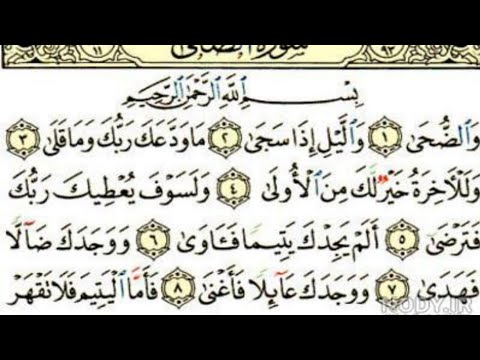 ١١ سورة الضحى ٩٣
بِسْمِ اللَّهِ الرَّحْمَٰنِ الرَّحِيمِ
وَالضُّحَىٰ ١ وَاللَّيْلِ إِذَا سَجَىٰ ٢ مَا وَدَّعَكَ رَبُّكَ وَمَا قَلَىٰ ٣
وَلَلْآخِرَةُ خَيْرٌ لَّكَ مِنَ الْأُولَىٰ ٤ وَلَسَوْفَ يُعْطِيكَ رَبُّكَ
فَتَرْضَىٰ ٥ أَلَمْ يَجِدْكَ يَتِيمًا فَـَٔاوَىٰ ٦ وَوَجَدَكَ ضَآلًّا
فَهَدَىٰ ٧ وَوَجَدَكَ عَآئِلًا فَأَغْنَىٰ ٨ فَأَمَّا الْيَتِيمَ فَلَا تَقْهَرْ